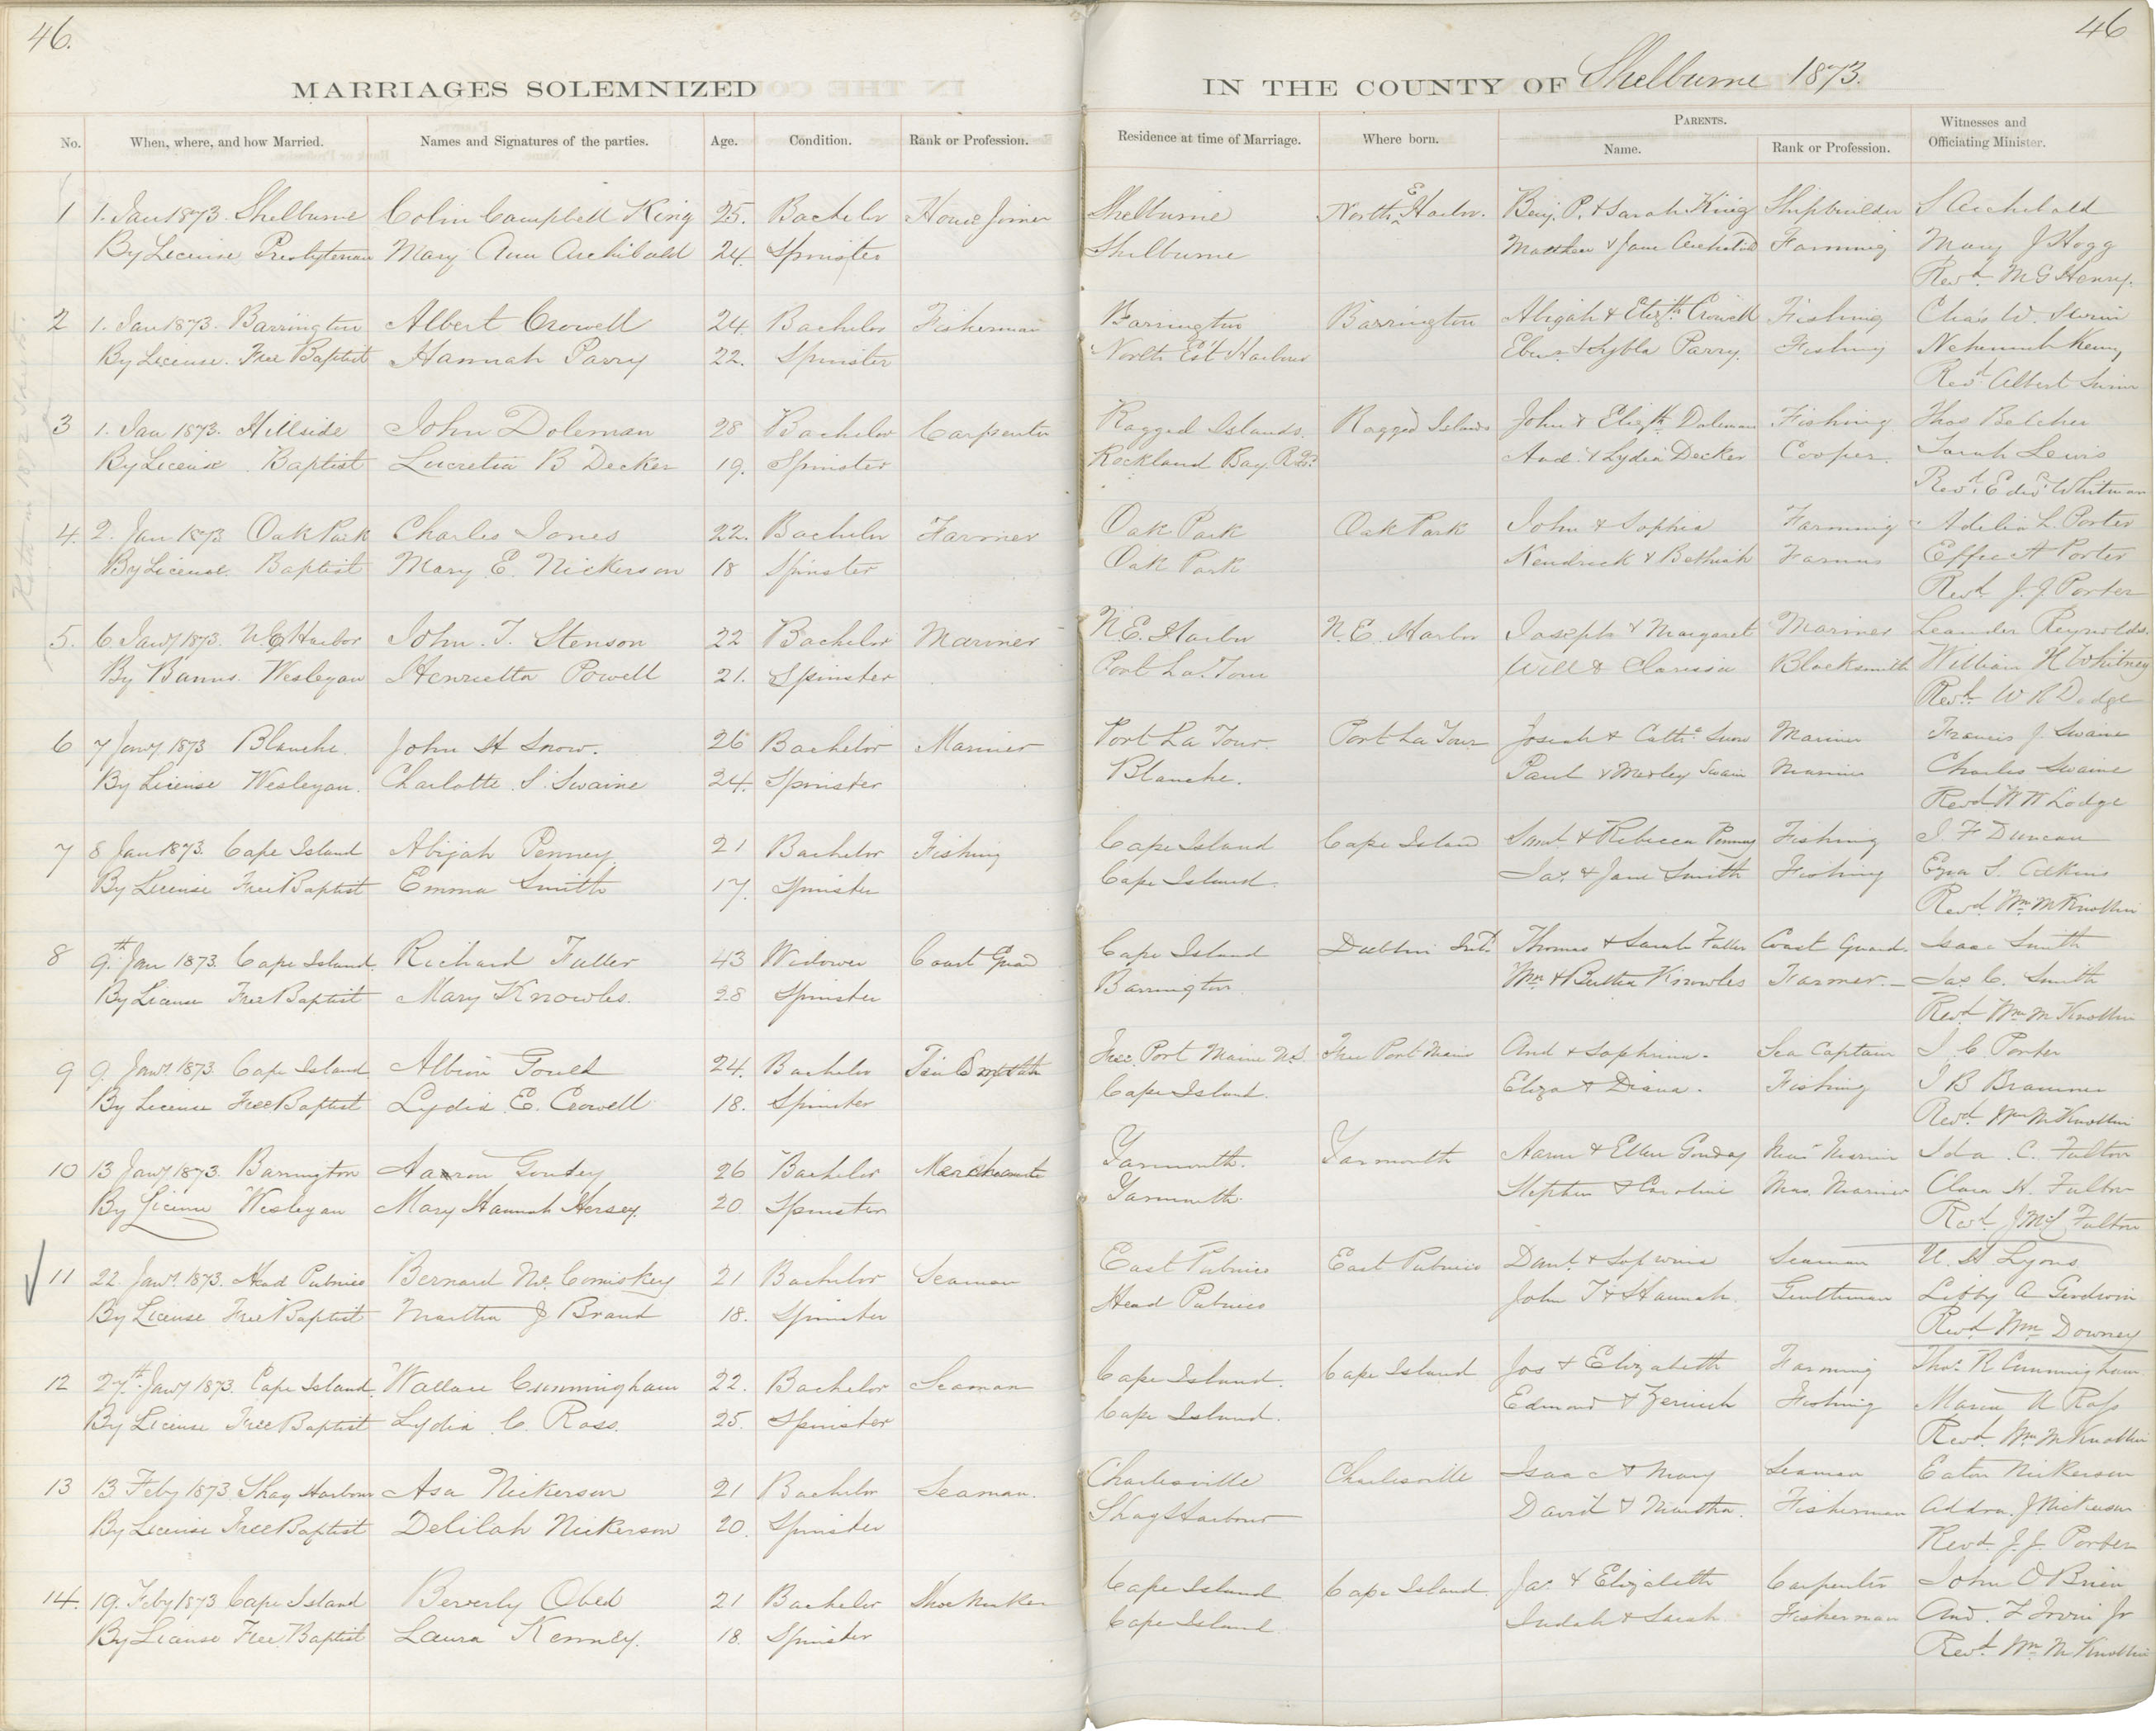 46.
46
MARRIAGES SOLEMNIZED
IN THE COUNTY OF Shelburne 1873.
No. When, where, and how Married. Names and Signatures of the parties. Age. Condition. Rank or Profession. Residence at time of Marriage. Where born. PARENTS. Name. Rank or Profession. Witnesses and Officiating Minister.
1 1. Jan 1873. Shelburne Colin Campbell King 25. Bachelor House Joiner Shelburne North E Harbor. Benj. P. & Sarah King Shipbuilder S Archibald
By License Presbyterian Mary Ann Archibald 24. Spinster Shelburne Matthew & Jane Archibald Farming Mary J Hogg
Revd. M G Henry.
2 1. Jan 1873. Barrington Albert Crowell 24. Bachelor Fisherman Barrington Barrington Abijah & Elizth Crowell Fishing Chas W. Swim
By License. Free Baptist Hannah Parry 22. Spinster North Est Harbour Eben. & Sybla Parry. Fishing Nehemiah Keny
Revd Albert Swim
3 1. Jan 1873. Hillside John Doleman 28 Bachelor Carpenter Ragged Islands. Ragged Islands John & Elizth. Doleman Fishing Thos Belcher
By License Baptist Lucretia B Decker 19. Spinster Rockland Bay And. & Lydia Decker Cooper. Sarah Lewis
Revd. Edwd. Whitman
4. 2. Jan 1873 Oak Park Charles Jones 22. Bachelor Farmer Oak Park Oak Park John & Sophia Farming Adelia L. Porter
By License. Baptist Mary E. Nickerson 18 Spinster Oak Park Kendrick & Bethiah Farmer Effie A Porter
Revd. J. J Porter
5. 6 Jany 1873. N.E Harbor John. T. Stenson 22 Bachelor Mariner N.E. Harbor N.E. Harbor Joseph & Margaret Mariner Leander Reynolds.
By Banns. Wesleyan Henrietta Powell 21. Spinster Port La. Tour Will & Clarissa Blacksmith William H Whitney
Revd. W R Dodge
6 7 Jany 1873 Blanche. John H Snow. 26 Bachelor Mariner Port La Tour. Port La Tour Josiah & Cathe. Snow Mariner Francis J. Swaine
By License Wesleyan. Charlotte. S. Swaine 24. Spinster Blanche. Paul & Swain Mariner Charles Swaine
Revd W W Lodge
7 8 Jan 1873. Cape Island Abijah Penney 21 Bachelor Fishing Cape Island Cape Island Saml. & Rebecca Penney Fishing J. F Duncan
By License Free Baptist Emma Smith 17. Spinster Cape Island. Jas. & Jane Smith Fishing Ezra S. Atkins
Revd. Wm. M Knollin
8 9th Jan 1873. Cape Island. Richard Fuller 43 Widower Coast Guard Cape Island Dublin Irld. Thomas & Sarah Fuller Coast Guard. Isaac Smith
By License Free Baptist Mary Knowles. 28 Spinster Barrington Wm & Knowles Farmer. Jas C. Smith
Revd Wm M Knollin
9 9. Jany 1873. Cape Island Albion Gould 24. Bachelor Tin Free Port Maine U.S. Free Port Maine And & Sophrina. Sea Captain J. C. Porter
By License Free Baptist Lydia. E. Crowell 18. Spinster Cape Island. Eliza & Diana. Fishing J B
Revd. Wm M Knollin
10 13 Jany 1873. Barrington Aaron Goudey 26 Bachelor Merchant Yarmouth. Yarmouth Aaron & Ellen Goudey Mas. Mariner Ida. C. Fulton
By License Wesleyan Mary Hannah Hersey. 20 Spinster Yarmouth. Stephen & Caroline Mas. Mariner Clara H. Fulton
Revd. J McL Fulton
11 22. Jany. 1873. Head Pubnico Bernard Mc. Comiskey 21 Bachelor Seaman East Pubnico East Pubnico Danl. & Seaman Lyons
By License Free Baptist Martha J Brand 18. Spinster Head Pubnico John T & Hannah. Gentleman Libby A Goodwin
Revd. Wm Downey
12 27th. Jany 1873. Cape Island. Wallace Cunningham 22. Bachelor Seaman Cape Island. Cape Island Jos & Elizabeth Farming Thos. R Cunningham
By License Free Baptist Lydia. C. Ross. 25. Spinster Cape Island. Edmond & Zeruiah Fishing Maria Ross
Revd. Wm. M Knollin
13 13 Feby 1873 Shag Harbour Asa Nickerson 21 Bachelor Seaman. Charlesville Charlesville Isaac & Mary Seaman Eaton Nickerson
By License Free Baptist Delilah Nickerson 20. Spinster Shag Harbour David & Martha. Fisherman J Nickerson
Revd. J. J. Porter
14. 19. Feby 1873 Cape Island Beverly Obed 21 Bachelor Shoe Maker Cape Island Cape Island Jas. & Elizabeth Carpenter John O Brien
By License Free Baptist Laura Kenney. 18. Spinster Cape Island Judah & Sarah Fisherman And. F Irvin Jr
Revd. Wm M Knollin